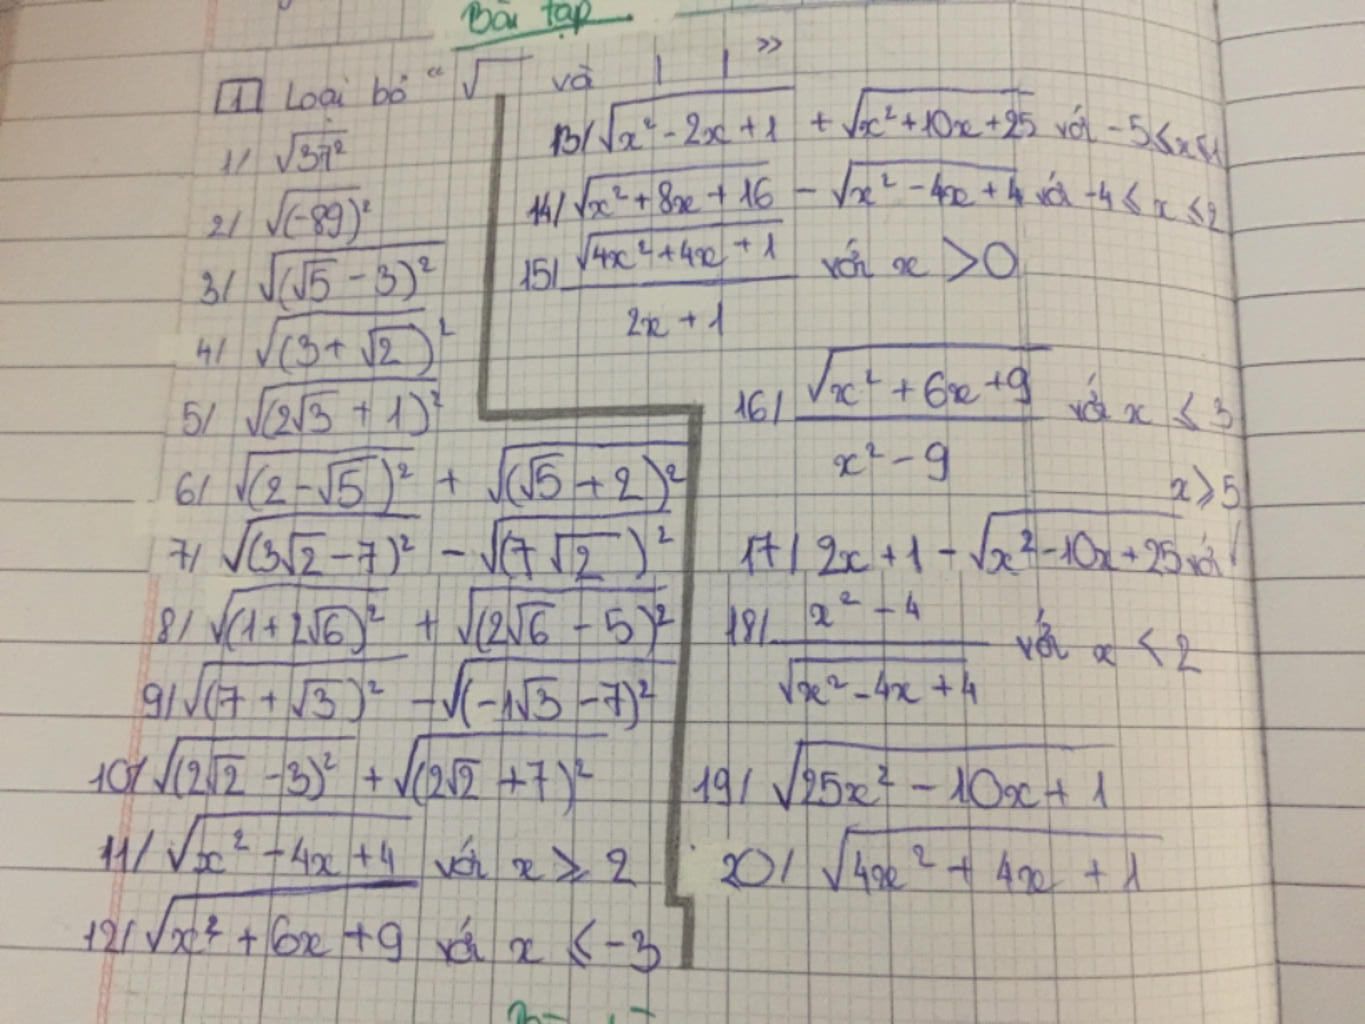 Bài tập
1 Loại bỏ "√ và | | "
1/ √37²
2/ √(-89)²
3/ √(√5 - 3)²
4/ √(3 + √2)²
5/ √(2√3 + 1)²
6/ √(2 - √5)² + √(√5 + 2)²
7/ √(3√2 - 7)² - √(7√2)²
8/ √(1 + 2√6)² + √(2√6 - 5)²
9/ √(7 + √3)² - √(-1√3 - 7)²
10/ √(2√2 - 3)² + √(2√2 + 7)²
11/ √x² - 4x + 4 với x ⩾ 2
12/ √x² + 6x + 9 với x ⩽ -3
13/ √x² - 2x + 1 + √x² + 10x + 25 với -5 ⩽ x ⩽ 1
14/ √x² + 8x + 16 - √x² - 4x + 4 với -4 ⩽ x ⩽ 2
15/ √4x² + 4x + 1 với x > 0
2x + 1
16/ √x² + 6x + 9 với x ⩽ 3
x² - 9
x ⩾ 5
17/ 2x + 1 - √x² - 10x + 25 với
18/ x² - 4 với x < 2
√x² - 4x + 4
19/ √25x² - 10x + 1
20/ √4x² + 4x + 1